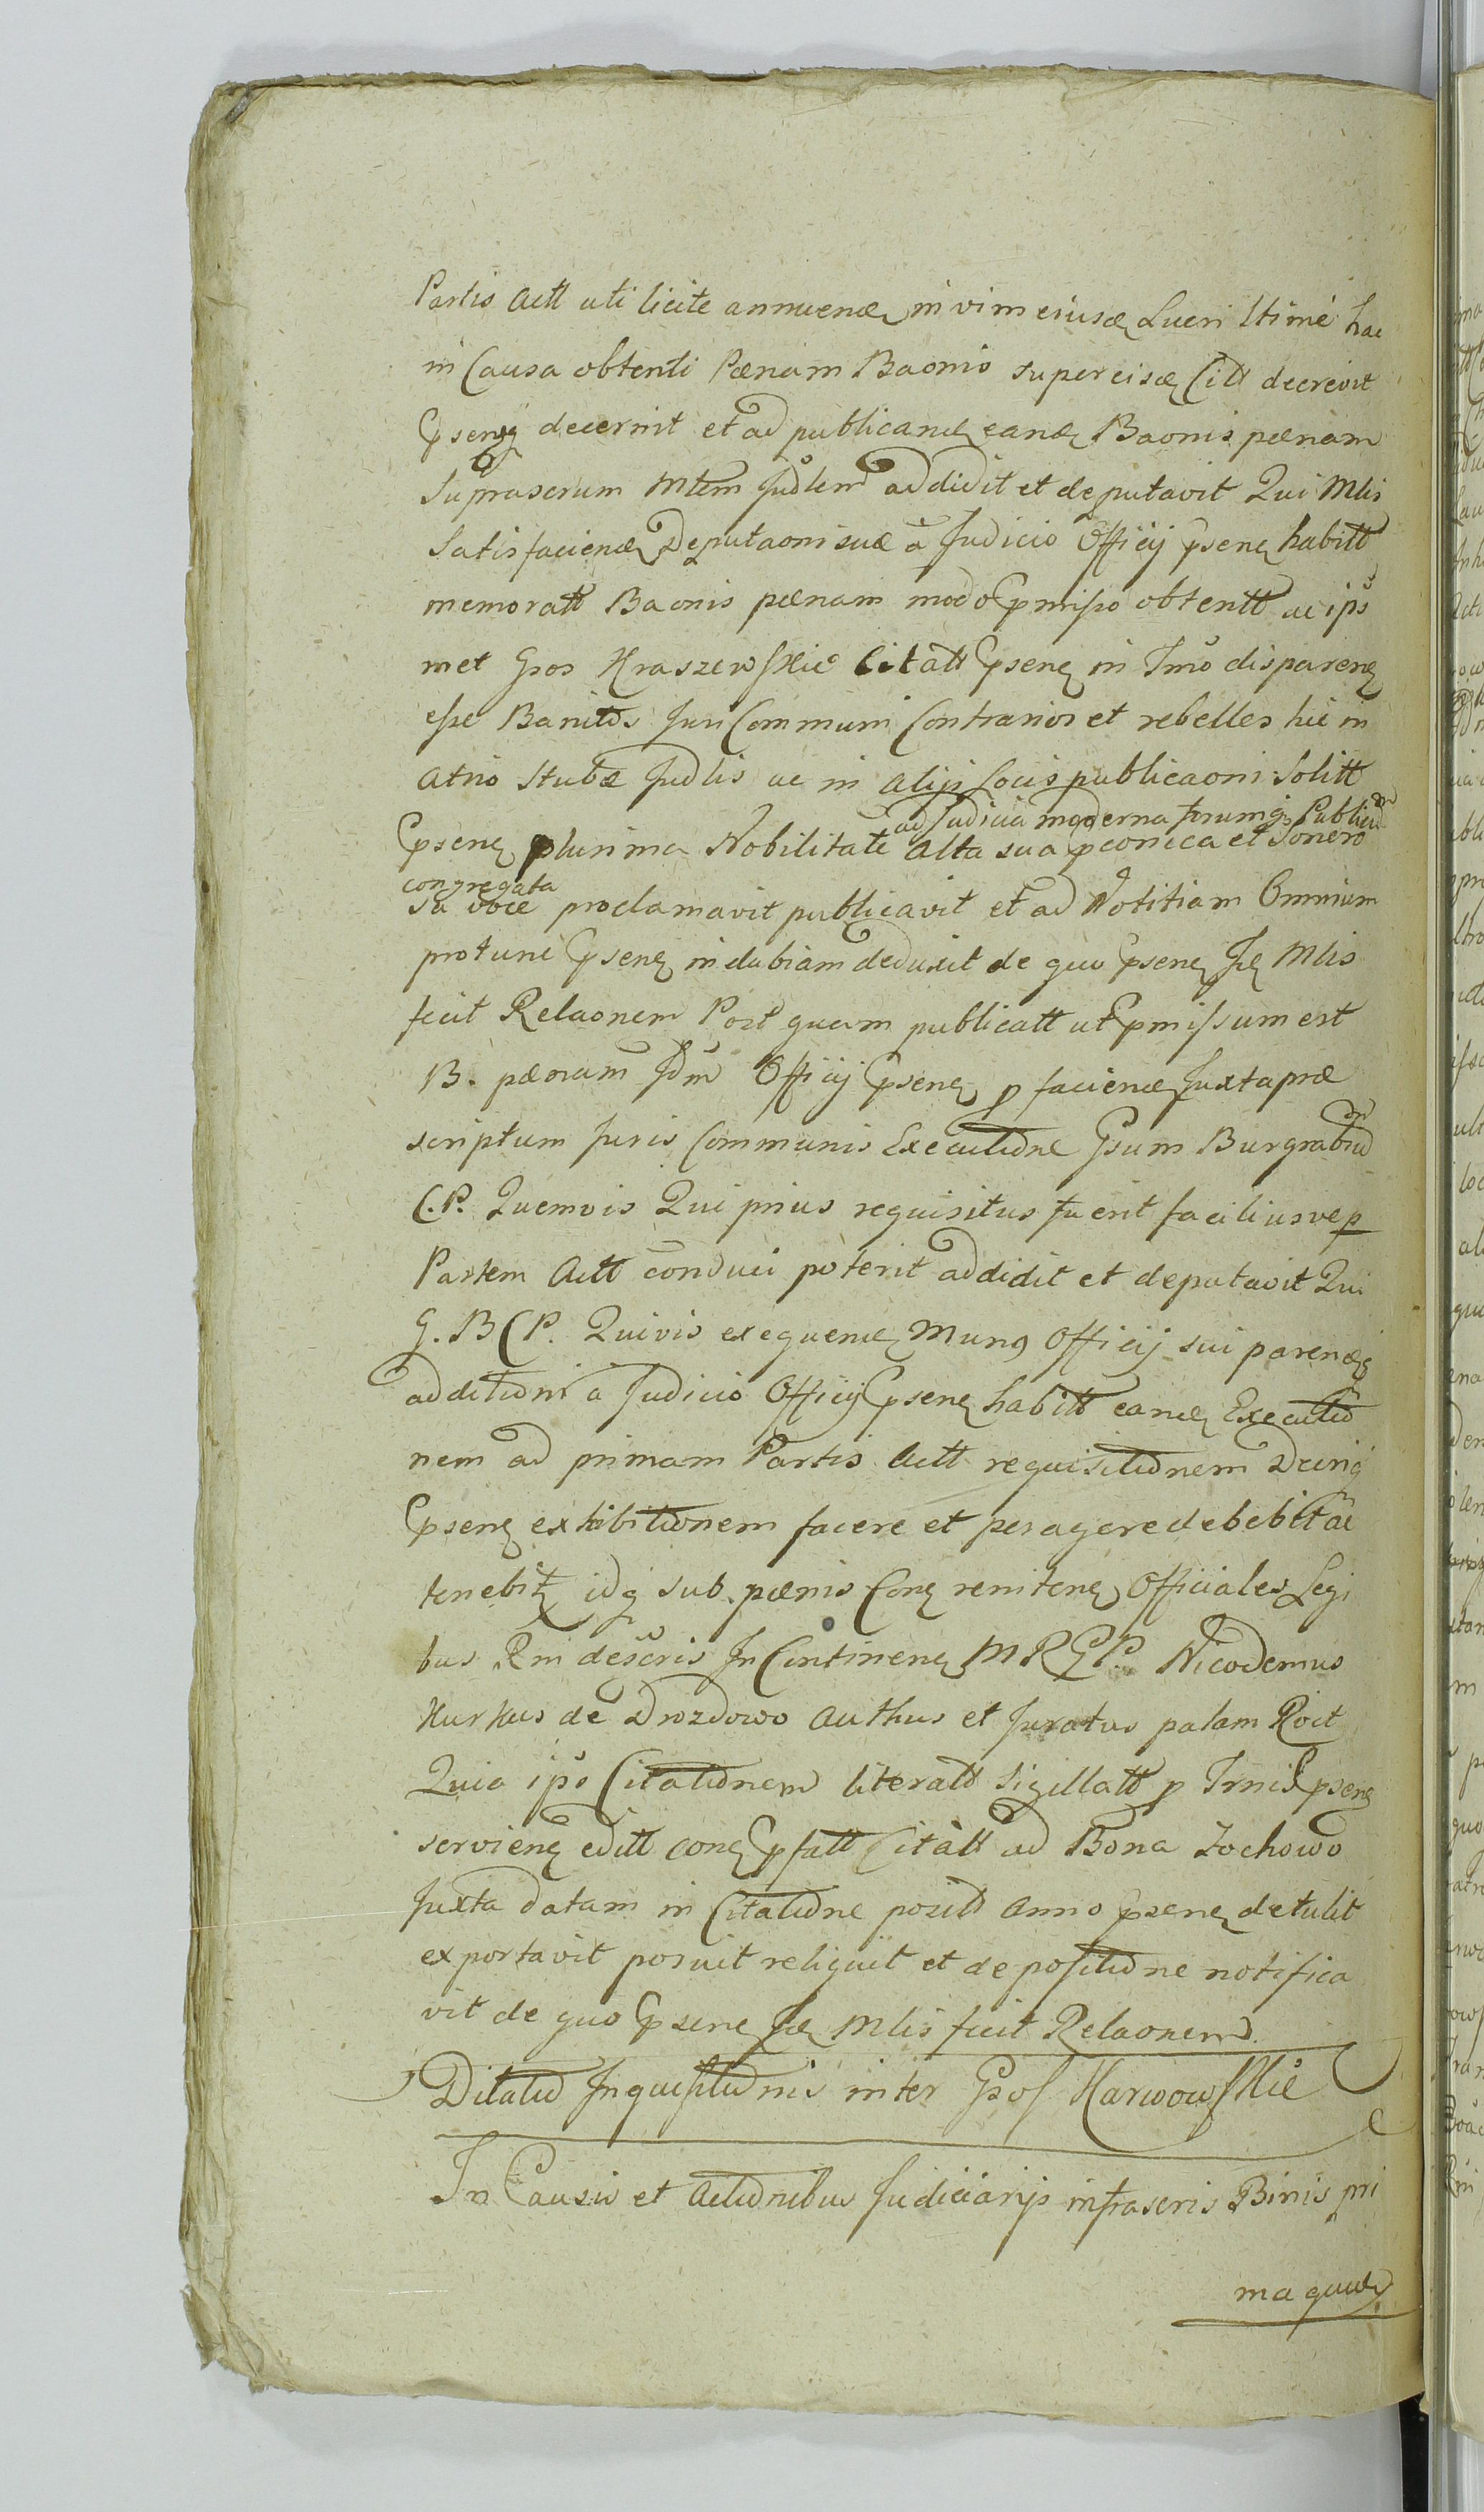 Partis Actt uti licite annuend in vim eiusd Lucri ltime hac
in Causa obtenti Pœnam Baonis super eisd Citt decrevit
Psensq decernit et ad publicand eand Baonis pœnam
Suprascrum Mtem Judlem addidit et deputavit Qui Mlis
Satisfaciend Deputaoni suæ à Judicio Officij psent habitt
memoratt Baonis pœnam modo Pmisso obtentt ac ips
met Gsos Kraszewskie Citatt Psent in Tmo disparent
esse Banitos Juri Communi Contrarios et rebelles hic in
atrio Stubæ Judlis ac in alijs Locis publicaoni Solitt
ad Judicia moderna forumq Publicum
Psent plurima Nobilitate alta sua pconica et Sonoro
congregata
sa voce proclamavit publicavit et ad Notitiam Omnium
protunc Psent indubiam deduxit de quo Psent Id Mlis
fecit Relaonem Post quam publicatt ut Pmissum est
B. pœnam Jdm Officij Psent p faciend Juxta præ
scriptum Juris Communis Executione Gsum Burgrabiu
C. P. Quemvis Qui prius requisitus fuerit faciliusve p
Partem Actt conduci poterit addidit et deputavit Qui
G. B C P. Quivis exequend Mung Officij sui parendq
additioni a Judicio Officij Psent habitt eand Executio
nem ad primam Partis Actt requisitionem Dciriq
Psent exhibitionem facere et peragere debebit ac
tenebit idq sub pœnis Cont renitent Officiales Legi
bus Rni descris In Continent M R G P. Nicodemus
Kurkus de Drozdowo Authus et Juratus palam Rcit
Quia ips Citationem literatt Sigillatt p Tmis Psent
servient editt cont Pfatt Citatt ad Bona Zochowo
Juxta datam in Citatione positt Anno psent detulit
exportavit posuit reliquit et de positione notifica
vit de quo Psent Id Mlis fecit Relaonem
Dilatio Inquisitionis inter Gsos Karwowskie
In Causis et Actionibus Judiciarijs infrascris Binis pri
ma quid